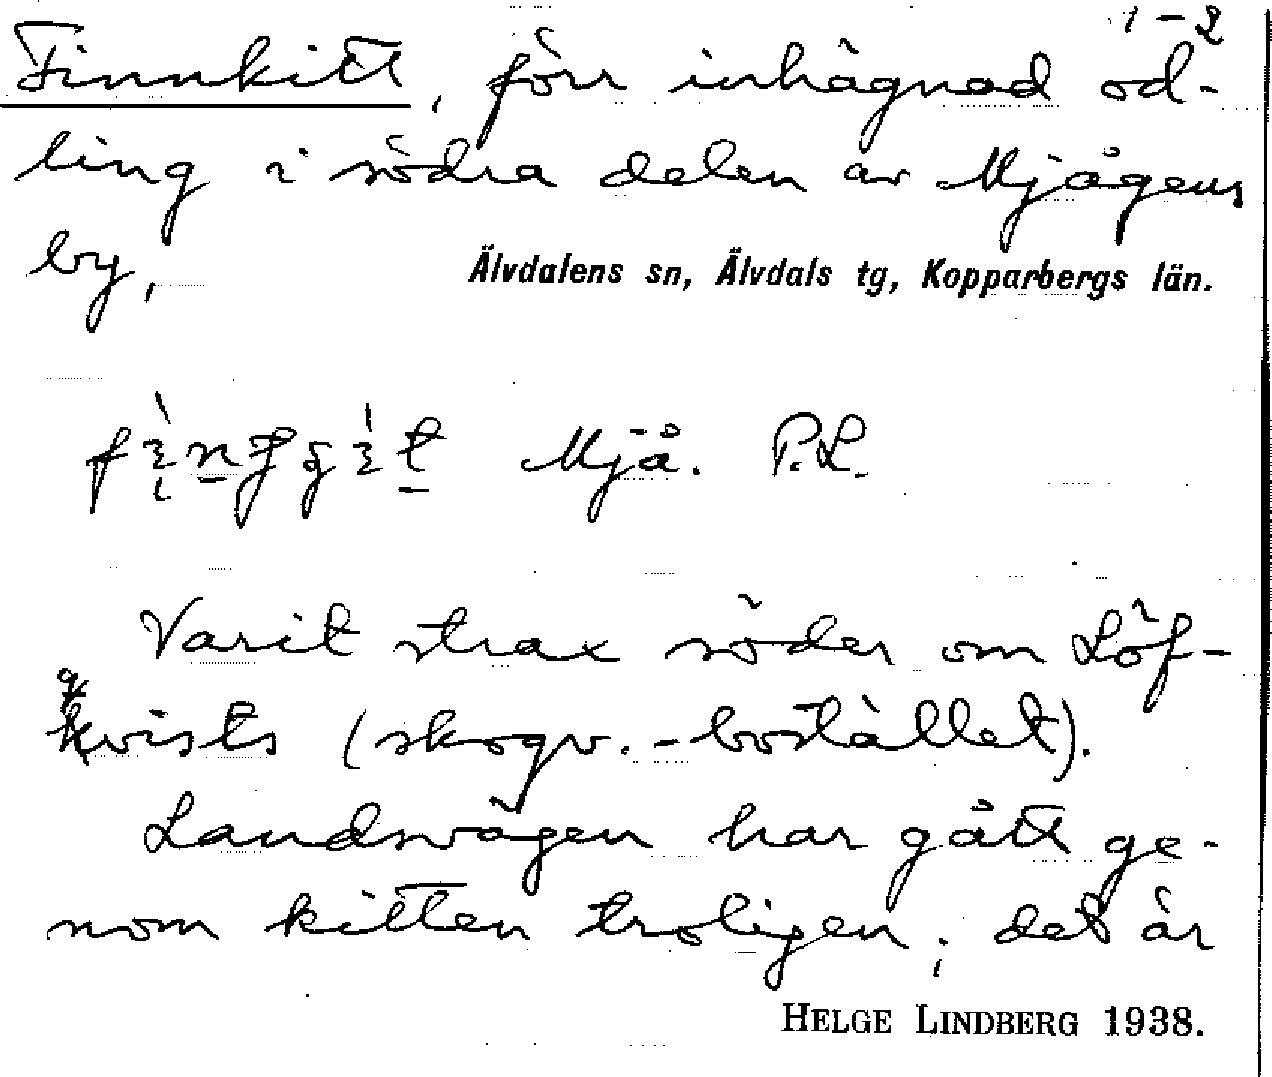 1-2
Finnkitt, förr inhägnad od-
ling i södra delen av Mjågens
by, Älvdalens sn, Älvdals tg, Kopparbergs län.
Mjå. P.L.
Varit strax söder om Löf-
qvists (skogv.-bostället).
Landsvägen har gått ge-
nom kitten troligen; det är
HELGE LINDBERG 1938.